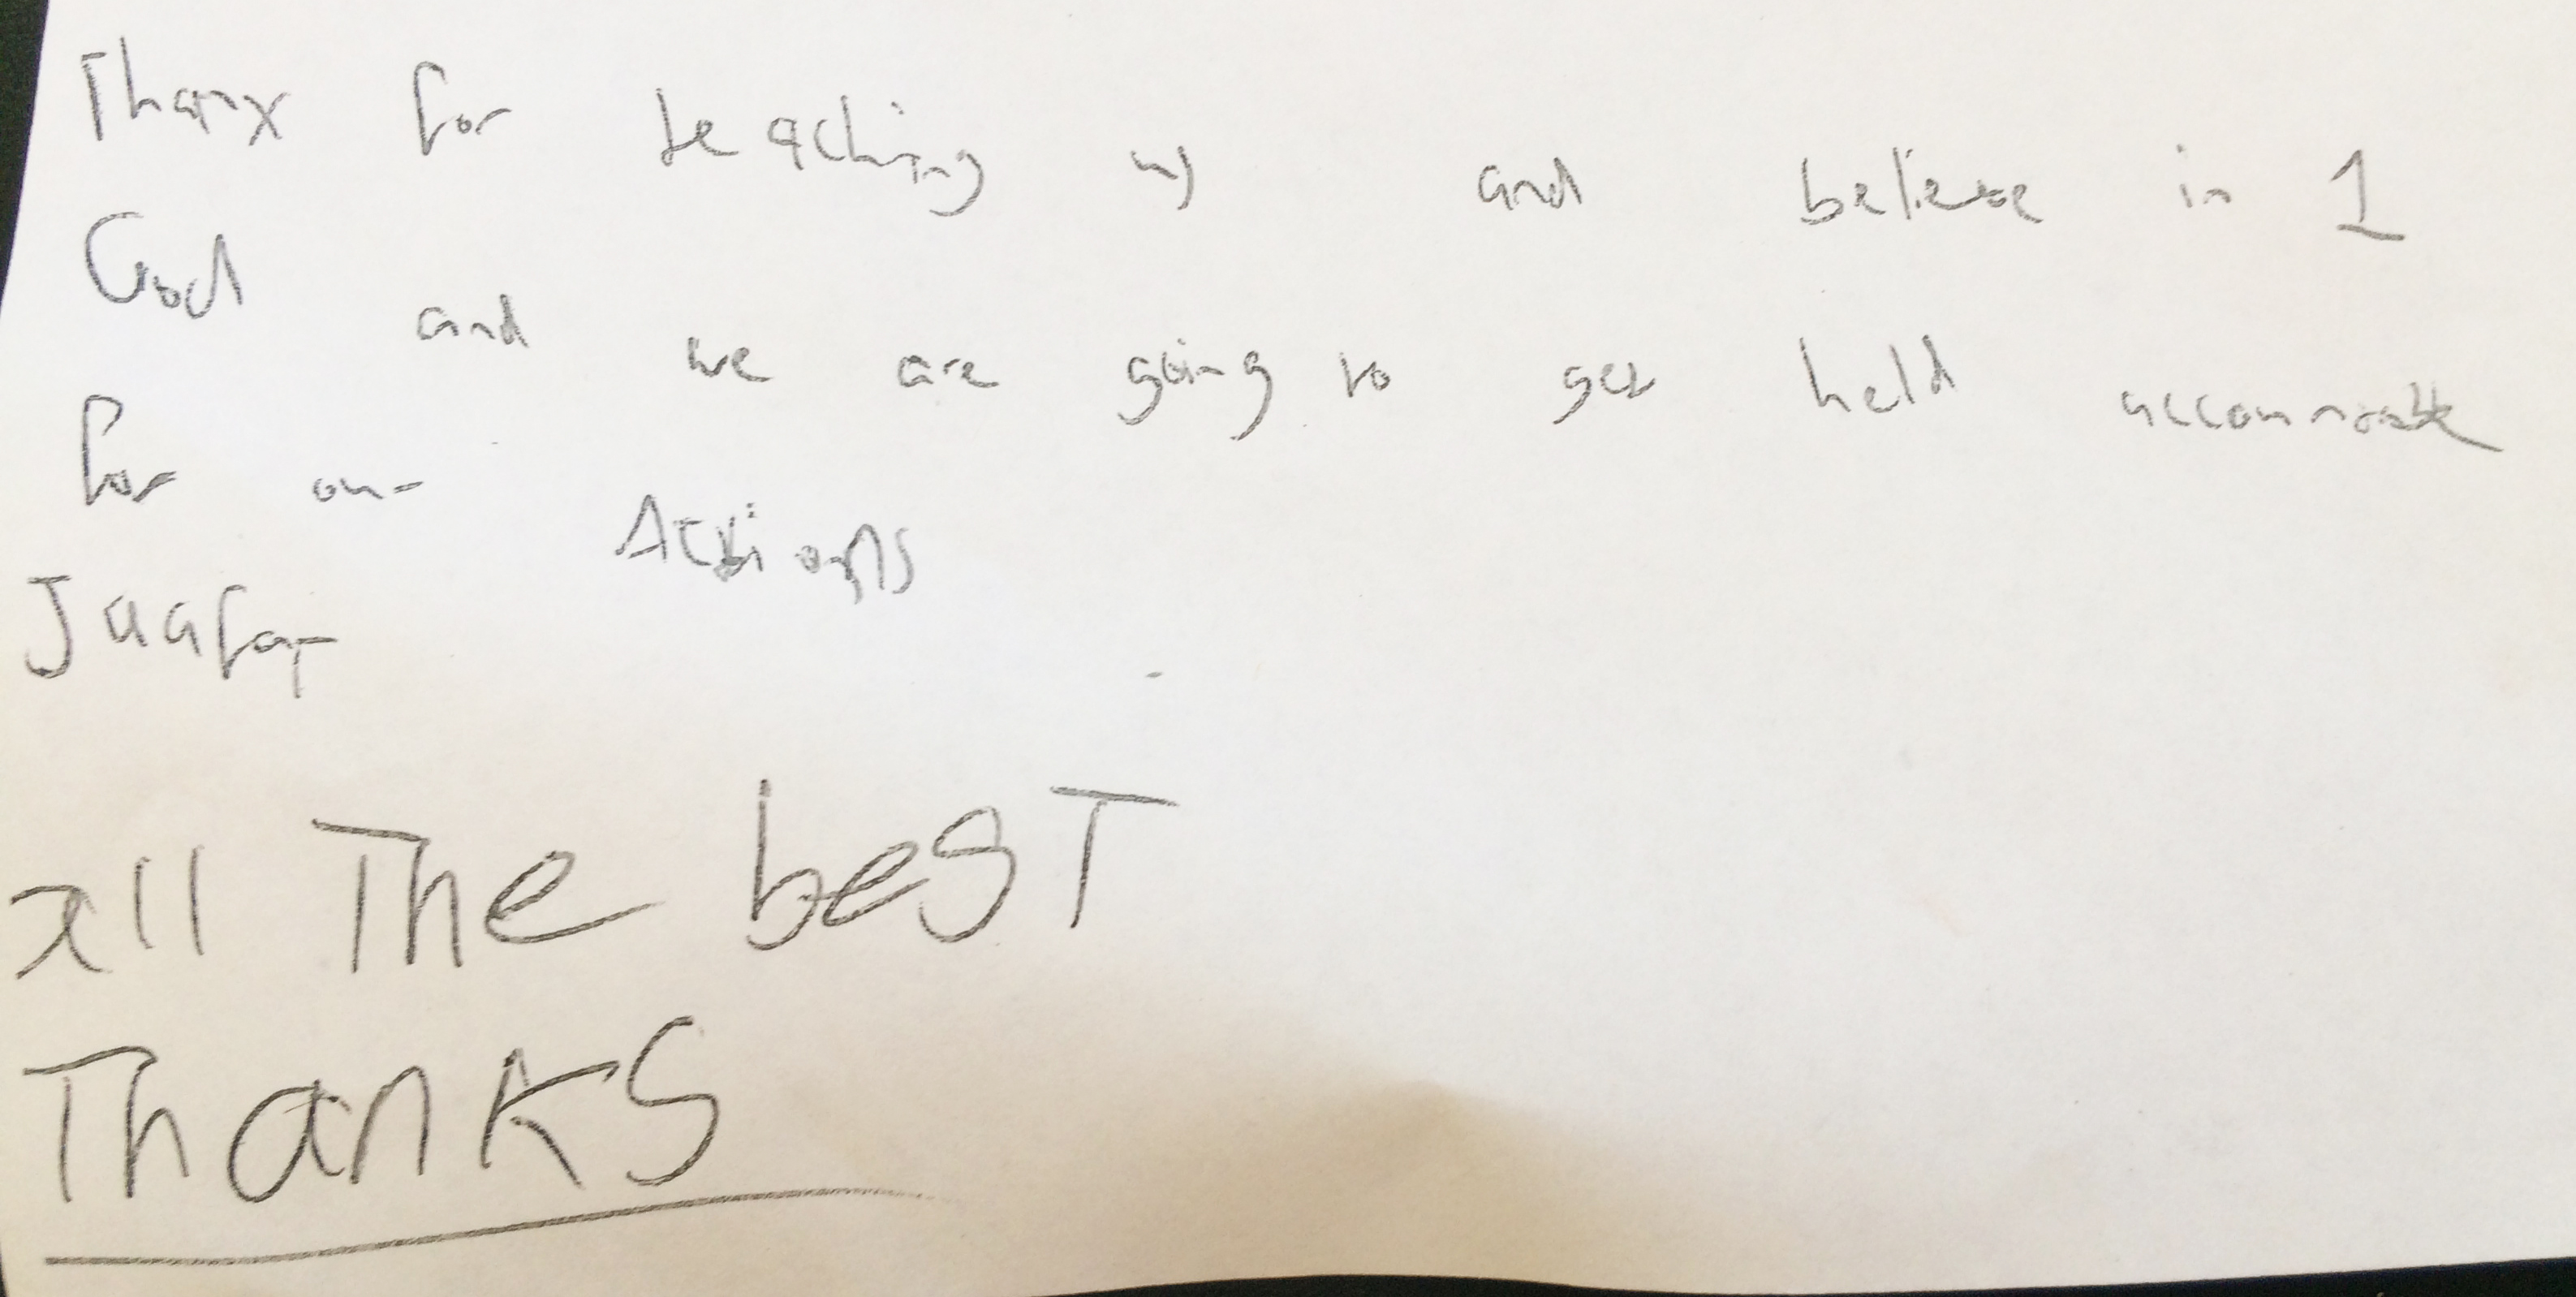 Thanx for teaching us and believe in 1
God and we are going to get held accountable
for our Actions
Jaafar
all The best
Thanks